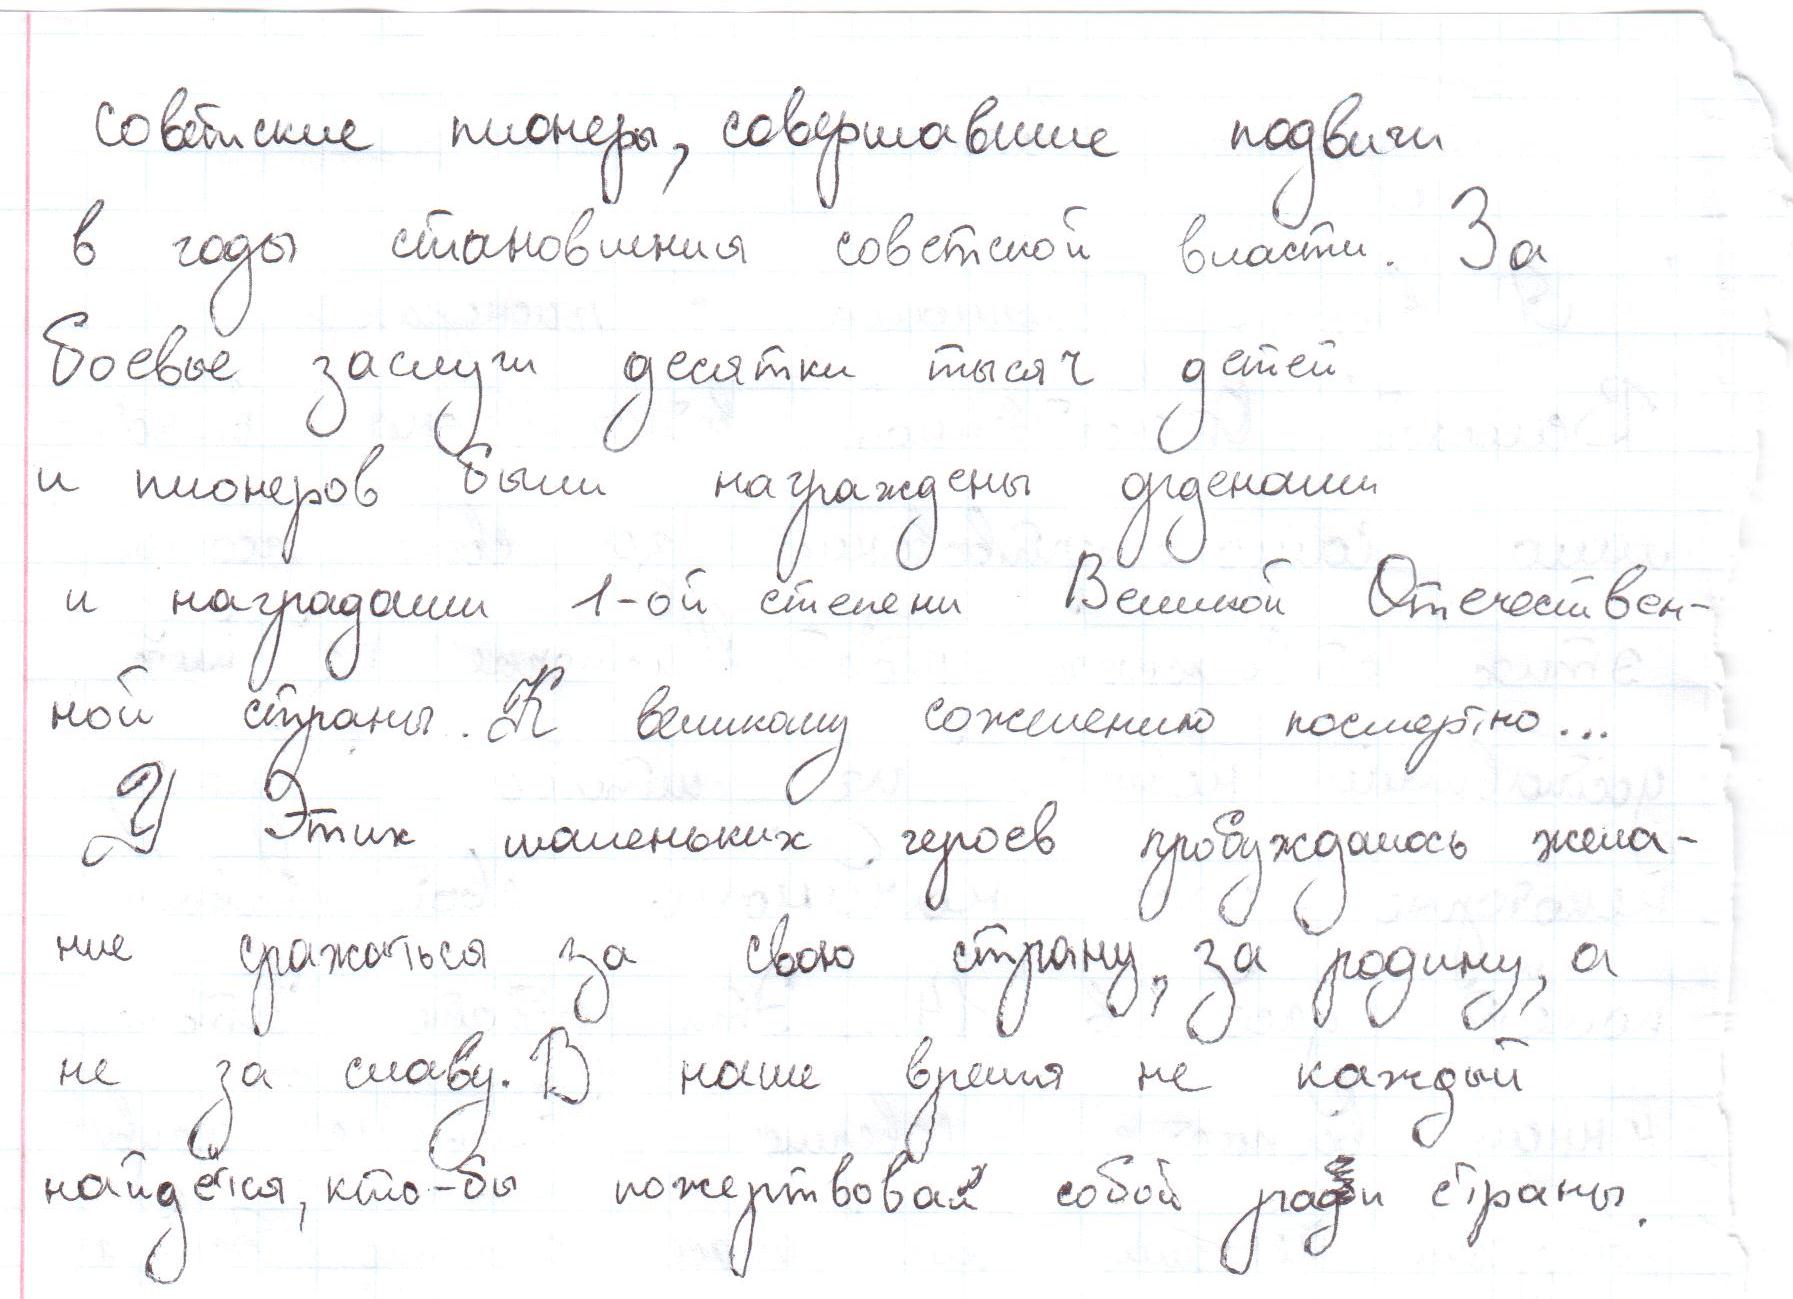 советские пионеры, совершавшие подвиги
в годы становления советской власти. За
боевые заслуги десятки тысяч детей
и пионеров были награждены орденами
и наградами 1-ой степени Великой Отечествен-
ной страны. К великому сожелению посмертно...
У Этих маленьких героев пробуждалось жела-
ние сражаться за свою страну, за родину, а
не за славу. В наше время не каждый
найдётся, кто-бы пожертвовал собой ради страны.